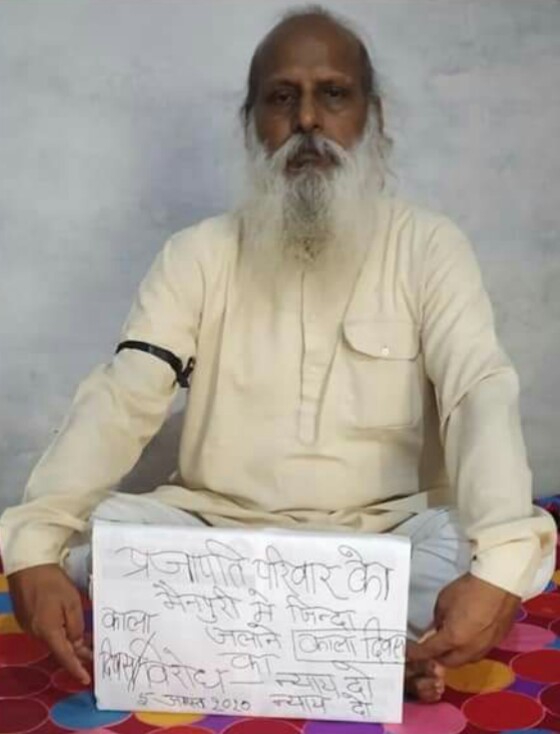 प्रजापति परिवार को
मैनपुरी मे जिन्दा
काला जलाने काला दिवस
दिवस विरोध का न्याय दो
5 अगस्त 2020 न्याय दो